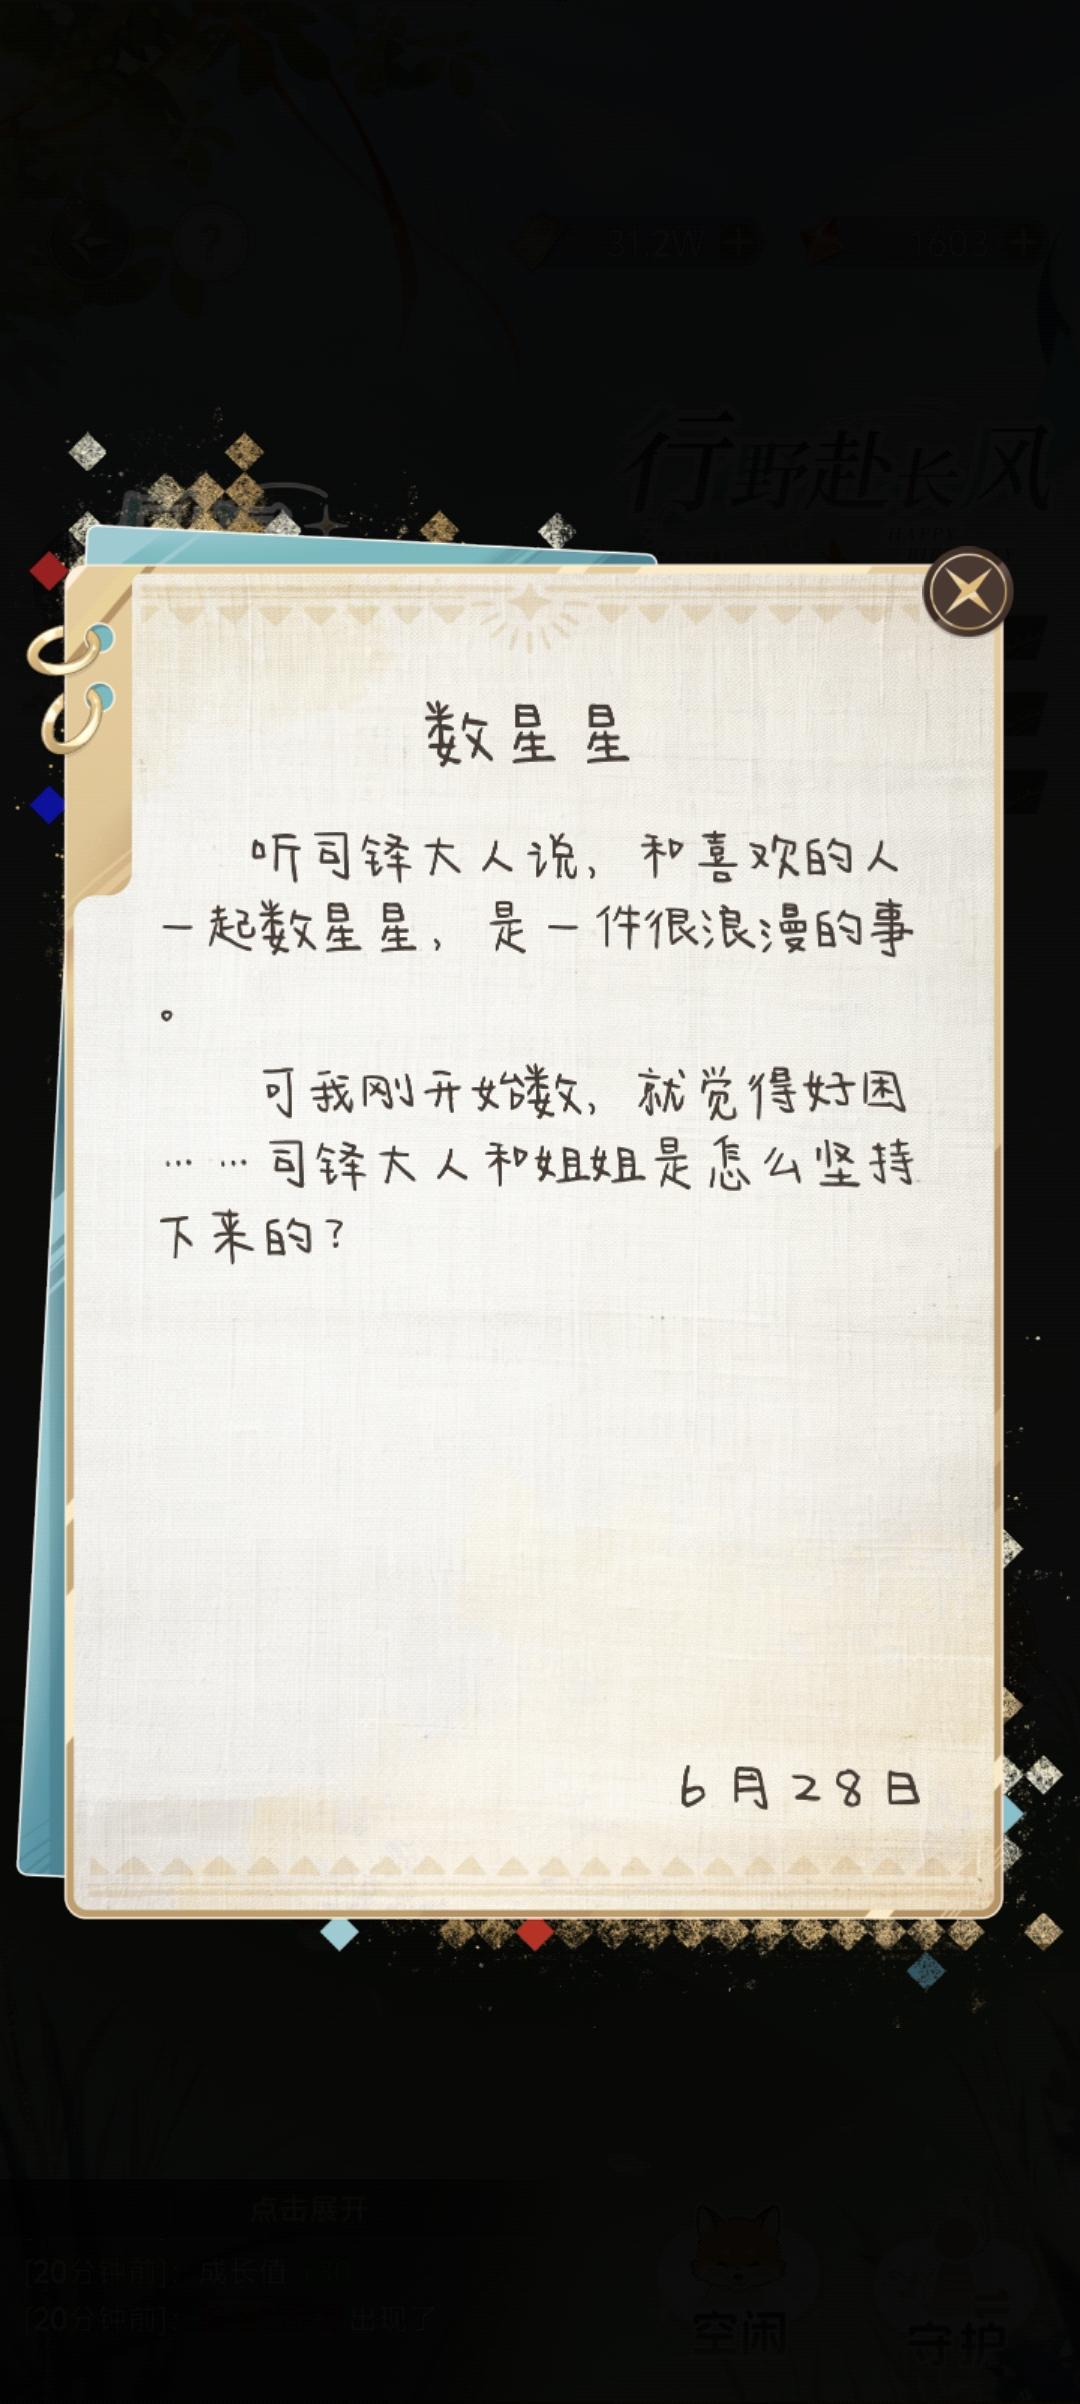 31.2W
1603
行野赴长风
HAPPY
数星星
听司铎大人说，和喜欢的人
一起数星星，是一件很浪漫的事
。
可我刚开始数，就觉得好困
……司铎大人和姐姐是怎么坚持
下来的？
6月28日
点击展开
[20分钟前]：成长值
[20分钟前]：
出现了
空闲
守护